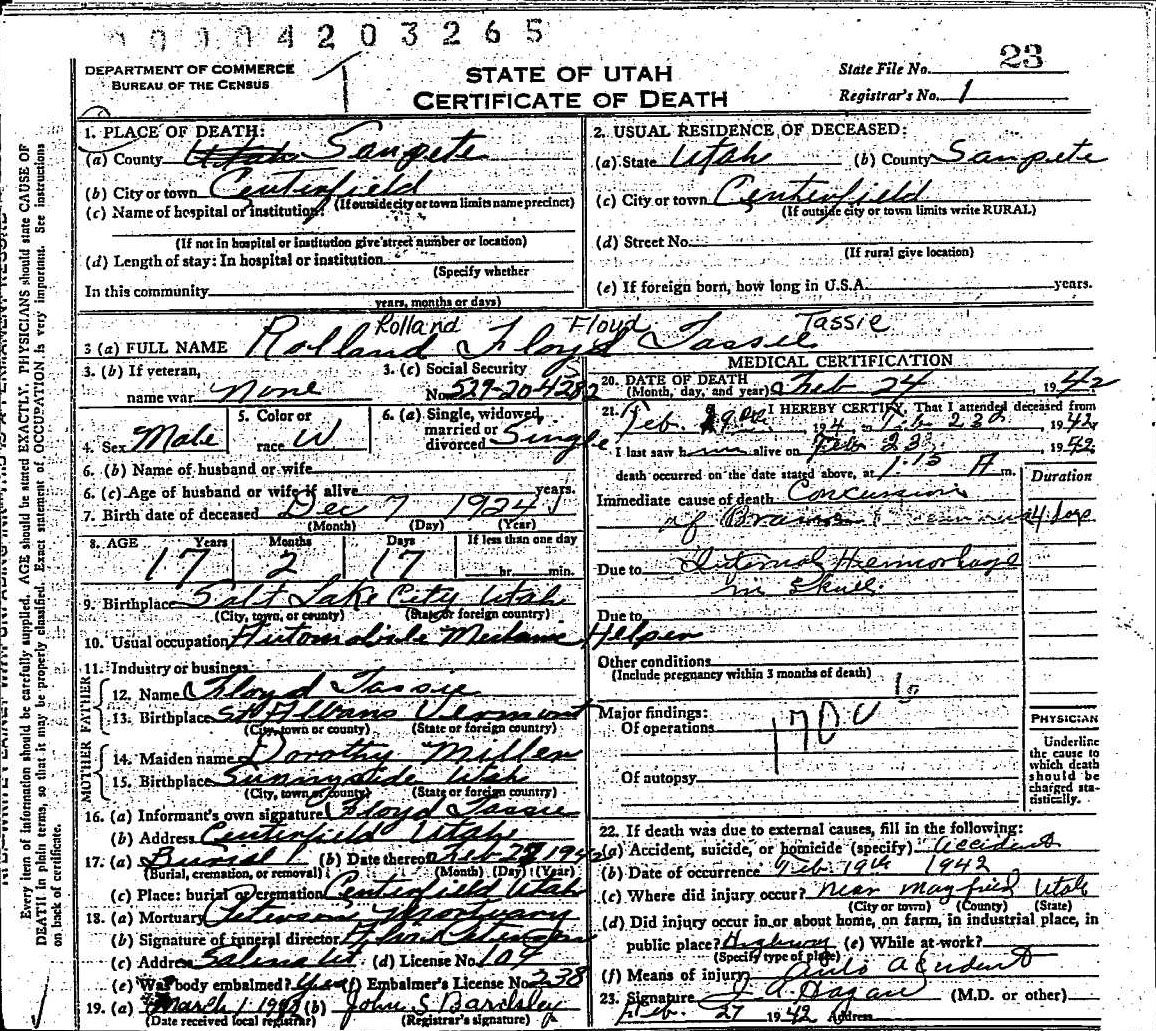 0 0 1 0 4 2 0 3 2 6 5
DEPARTMENT OF COMMERCE
BUREAU OF THE CENSUS
STATE OF UTAH
CERTIFICATE OF DEATH
State File No. 23
Registrar's No. 1
Every item of information should be carefully supplied. AGE should be stated EXACTLY. PHYSICIANS should state CAUSE OF
DEATH in plain terms, so that it may be properly classified. Exact statement of OCCUPATION is very important. See instructions
on back of certificate.
1. PLACE OF DEATH:
(a) County Utah Sanpete
(b) City or town Centerfield
(If outside city or town limits name precinct)
(c) Name of hospital or institution:
(If not in hospital or institution give street number or location)
(d) Length of stay: In hospital or institution
(Specify whether
In this community
years, months or days)
2. USUAL RESIDENCE OF DECEASED:
(a) State Utah (b) County Sanpete
(c) City or town Centerfield
(If outside city or town limits write RURAL)
(d) Street No.
(If rural give location)
(e) If foreign born, how long in U.S.A. years.
Rolland Floyd Tassie
3 (a) FULL NAME Rolland Floyd Tassie
3. (b) If veteran,
name war None
3. (c) Social Security
No. 529-20-4282
4. Sex Male
5. Color or
race W
6. (a) Single, widowed,
married or
divorced Single
6. (b) Name of husband or wife
6. (c) Age of husband or wife if alive years.
7. Birth date of deceased Dec 7 1924
(Month) (Day) (Year)
8. AGE Years Months Days If less than one day
17 2 17 hr. min.
9. Birthplace Salt Lake City Utah
(City, town, or county) (State or foreign country)
10. Usual occupation Automobile Mechanic Helper
11. Industry or business
FATHER
12. Name Floyd Tassie
13. Birthplace St Albans Vermont
(City, town or county) (State or foreign country)
MOTHER
14. Maiden name Dorothy Miller
15. Birthplace Sunnyside Utah
(City, town or county) (State or foreign country)
16. (a) Informant's own signature Floyd Tassie
(b) Address Centerfield Utah
17. (a) Burial (b) Date thereof Feb 1942
(Burial, cremation, or removal) (Month) (Day) (Year)
(c) Place: burial or cremation Centerfield Utah
18. (a) Mortuary Peterson Mortuary
(b) Signature of funeral director
(c) Address Salina Ut (d) License No. 109
(e) Was body embalmed? Yes (f) Embalmer's License No. 238
19. (a) March 1 (b) John S. Bardsley
(Date received local registrar) (Registrar's signature)
MEDICAL CERTIFICATION
20. DATE OF DEATH
(Month, day, and year) Feb 24 1942
21. I HEREBY CERTIFY, That I attended deceased from
Feb. 194 to Feb 23 1942
I last saw him alive on Feb 23 1942
death occurred on the date stated above, at 1.15 A m.
Duration
Immediate cause of death Concussion
of Brain 4 days
Due to Internal Hemorhage
in Skull
Due to
Other conditions
(Include pregnancy within 3 months of death)
Major findings:
Of operations
170
Of autopsy
PHYSICIAN
Underline
the cause to
which death
should be
charged sta-
tistically.
22. If death was due to external causes, fill in the following:
(a) Accident, suicide, or homicide (specify) accident
(b) Date of occurrence Feb 19th 1942
(c) Where did injury occur? near Mayfield Utah
(City or town) (County) (State)
(d) Did injury occur in or about home, on farm, in industrial place, in
public place? Highway (e) While at work?
(Specify type of place)
(f) Means of injury Auto Accident
23. Signature J. A. Hagan (M.D. or other)
Feb. 27 1942 Address